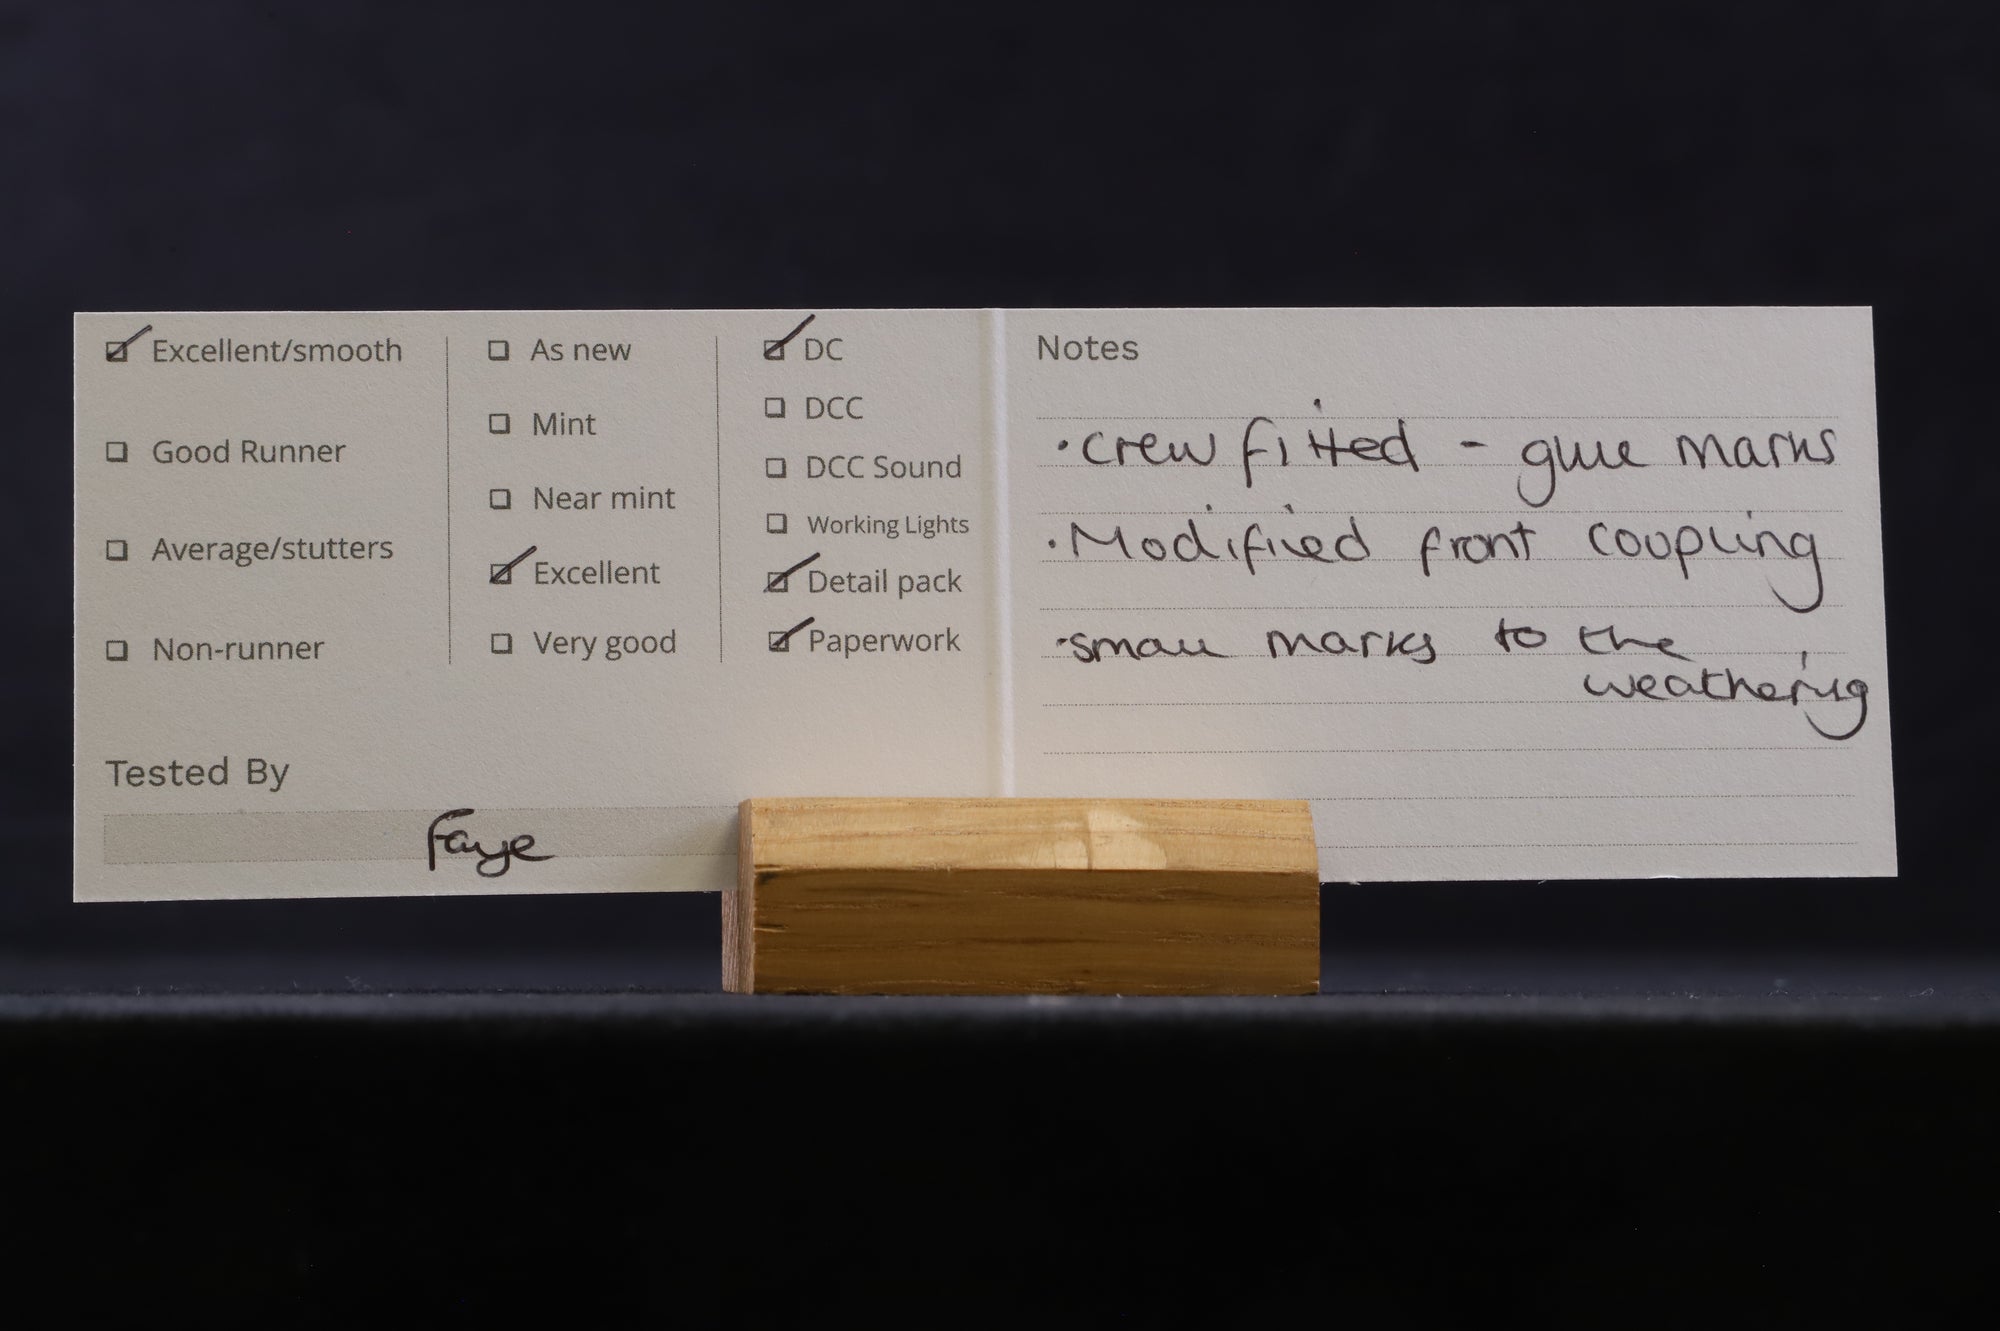 Excellent/smooth
Good Runner
Average/stutters
Non-runner
As new
Mint
Near mint
Excellent
Very good
DC
DCC
DCC Sound
Working Lights
Detail pack
Paperwork
Tested By
Faye
Notes
• crew fitted - glue marks
• Modified front coupling
• small marks to the
weathering